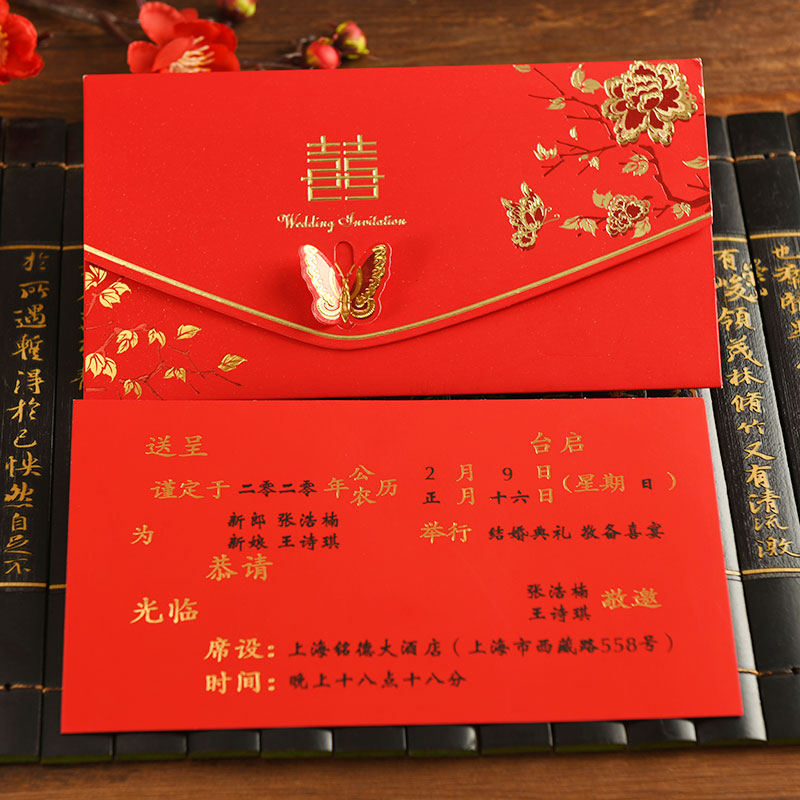 囍
Wedding Invitation
送呈 台启
谨定于 二零二零 年 公历 2 月 9 日 (星期 日 )
农历 正 月 十六 日
为 新郎 张浩楠
新娘 王诗琪
举行 结婚典礼 敬备喜宴
恭请
光临
张浩楠
王诗琪 敬邀
席设：上海铭德大酒店（上海市西藏路558号）
时间：晚上十八点十八分
於所遇暫得於己怏然自足不
有峻領茂林脩竹又有清流激